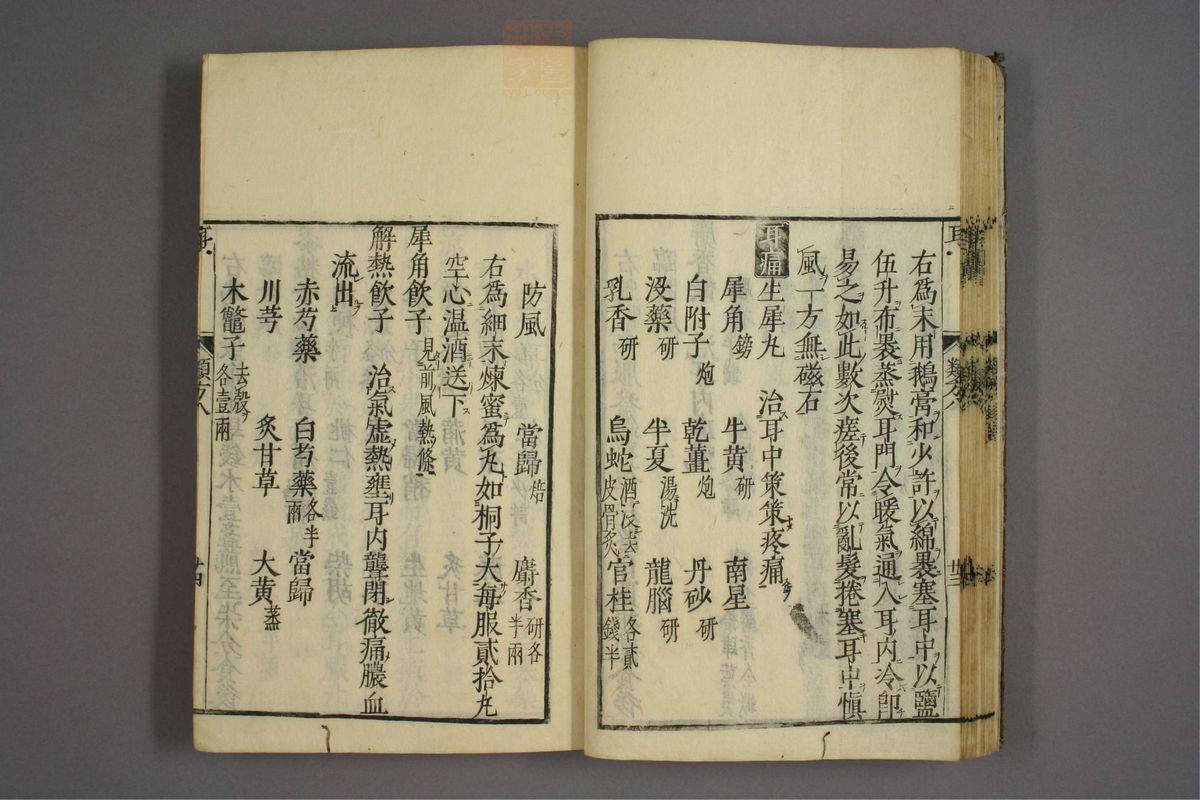 右爲末用鵝膏和少許以綿裹塞耳中以鹽
伍升布裹蒸熨耳門令暖氣通入耳内冷卽
易之如此數次瘥後常以亂髮捲塞耳中慎
風一方無磁石
耳痛 生犀丸 治耳中策策疼痛
犀角鎊 牛黄研 南星
白附子炮 乾薑炮 丹砂研
没藥研 半夏湯洗 龍腦研
乳香研 烏蛇酒浸去皮骨炙 官桂各貳錢半
防風 當歸焙 麝香研各半兩
右爲細末煉蜜爲丸如桐子大每服貳拾丸
空心温酒送下
犀角飲子 見前風熱條
解熱飲子 治氣虚熱壅耳内聾閉徹痛膿血
流出
赤芍藥 白芍藥各半兩 當歸
川芎 炙甘草 大黄蒸
木鼈子去殼各壹兩
耳
類方八
廿四